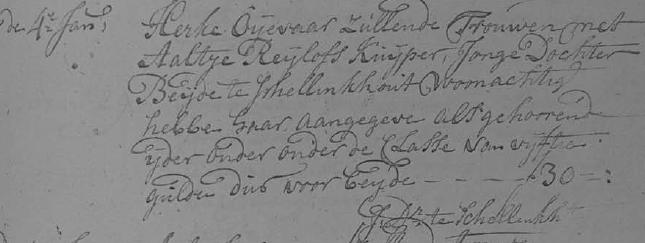 de 4e Jan: Herke Oijevaar zullende Trouwen met
Aaltje Reijlofs Kuijper, Jonge Dochter
Beijde te Schellinkhout Woonachtig
hebbe haar aangegeve als gehoorende
ijder onder onder de Classe van vijftie
gulde dus voor beijde - - - - ƒ30 - :
te Schellinkh